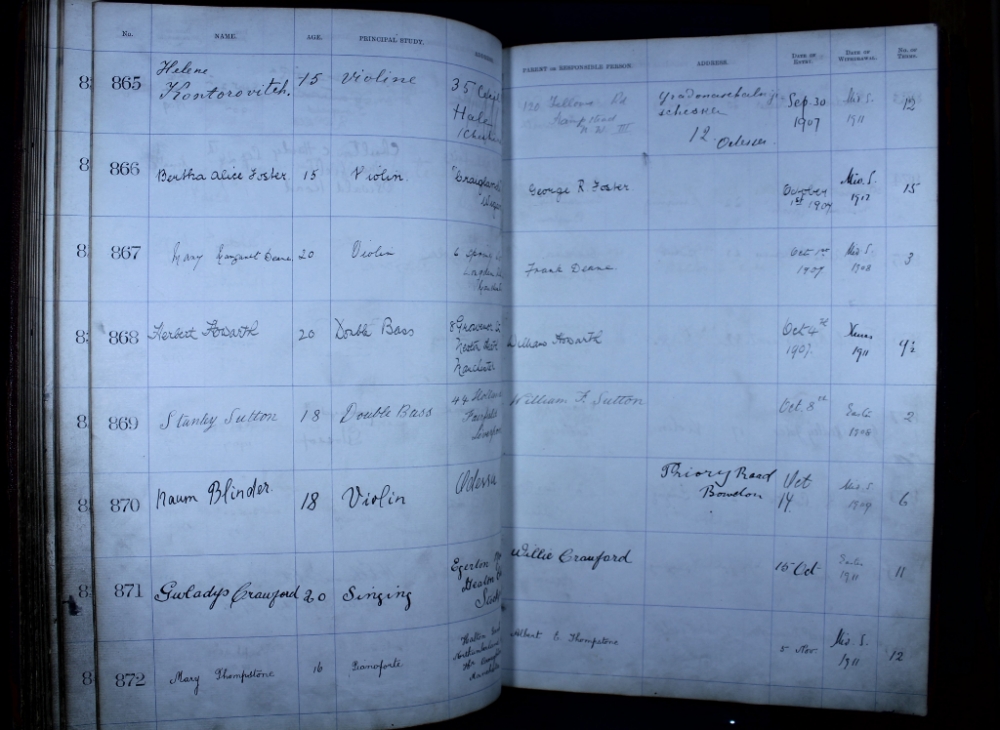 No. NAME. AGE. PRINCIPAL STUDY. PARENT OR RESPONSIBLE PERSON. ADDRESS. DATE OF ENTRY. DATE OF WITHDRAWAL. NO. OF TERMS.
865 Helene Kontorovitch. 15 Violine 35 Hale 120 Fellows Rd Hampstead N.W. III 12 Odessa Sep. 30 1907 Mis S. 1911 12
866 Bertha Alice Foster 15 Violin. George R Foster October 1st 1907 Mis. S. 1912 15
867 Mary Margaret Deane 20 Violin 6 Spring Frank Deane Oct 1st 1907 Mis S. 1908 3
868 Herbert Howarth 20 Double Bass 8 Grosvenor Manchester William Howarth Oct 4th 1907. Xmas 1911
869 Stanley Sutton 18 Double Bass 44 Liverpool William F. Sutton Oct. 8th Easter 1908 2
870 Naum Blinder. 18 Violin Odessa Priory Road Bowdon Oct 14. Mis S. 1909 6
871 Gwladys Crauford 20 Singing Egerton Heaton Stock Willie Crauford 15 Oct Easter 1911 11
872 Mary Thompstone 16 Pianoforte Albert E Thompstone 5 Nov. Mis S. 1911 12